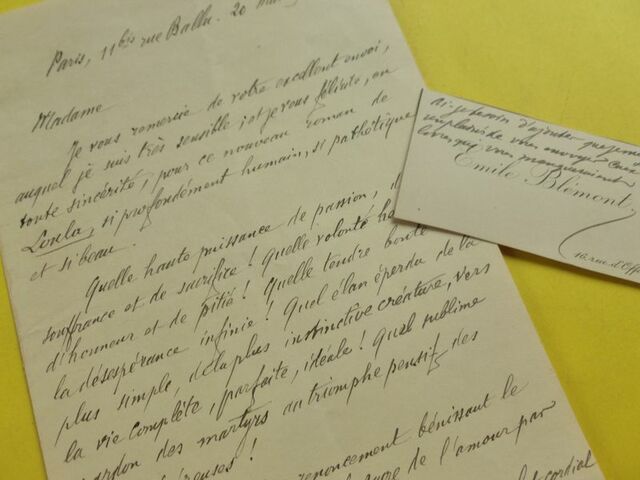 Paris, 11 bis rue Ballu. 20 mai
Madame
Je vous remercie de votre excellent envoi,
auquel je suis très sensible ; et je vous félicite, en
toute sincérité, pour ce nouveau roman de
Loula, si profondément humain, si pathétique
et si beau.
Quelle haute puissance de passion, d
souffrance et de sacrifice ! Quelle volonté
d'honneur et de pitié ! Quelle tendre bonté
la désespérance infinie ! Quel élan éperdu de la
plus simple, de la plus instinctive créature, vers
la vie complète, parfaite, idéale ! Quel sublime
pardon des martyrs au triomphe pensif des
reuses !
renoncement bénissant le
de l'amour par
cordial
ai-je besoin d'ajouter que
plaisir de vous envoyer
livres qui vous manqueraient
Emile Blémont,
16 rue d'Off